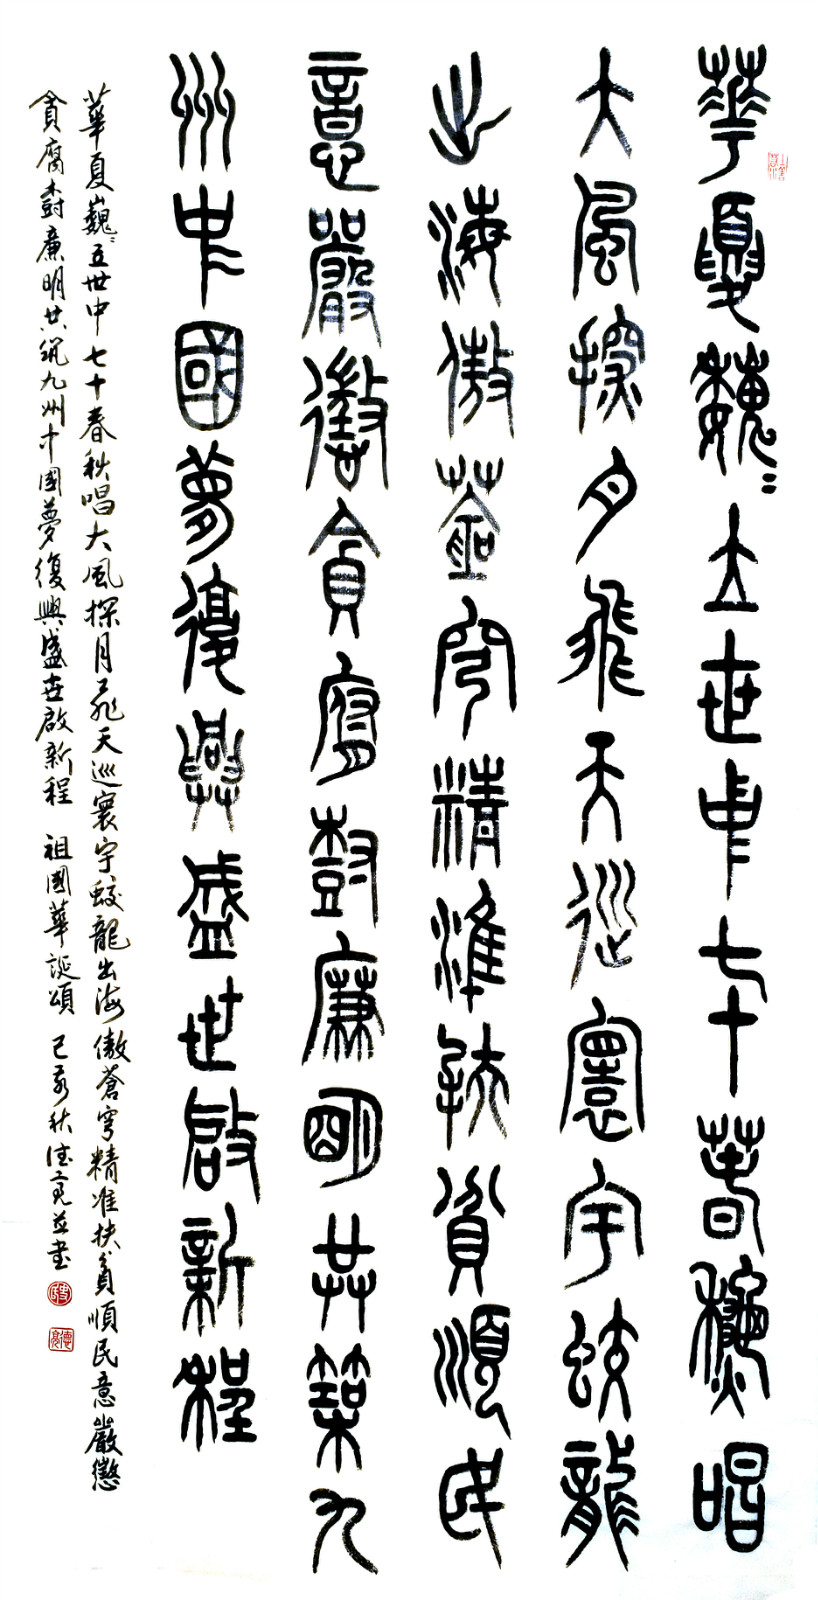 華夏巍〻立世中七十春秋唱
大風探月飛天巡寰宇蛟龍
出海傲蒼穹精准扶貧順民
意嚴懲貪腐樹廉明共築九
州中國夢復興盛世啟新程
華夏巍〻立世中七十春秋唱大風探月飛天巡寰宇蛟龍出海傲蒼穹精准扶貧順民意嚴懲
貪腐樹廉明共筑九州中國夢復興盛世啟新程 祖國華誕頌 己亥秋德亮並書